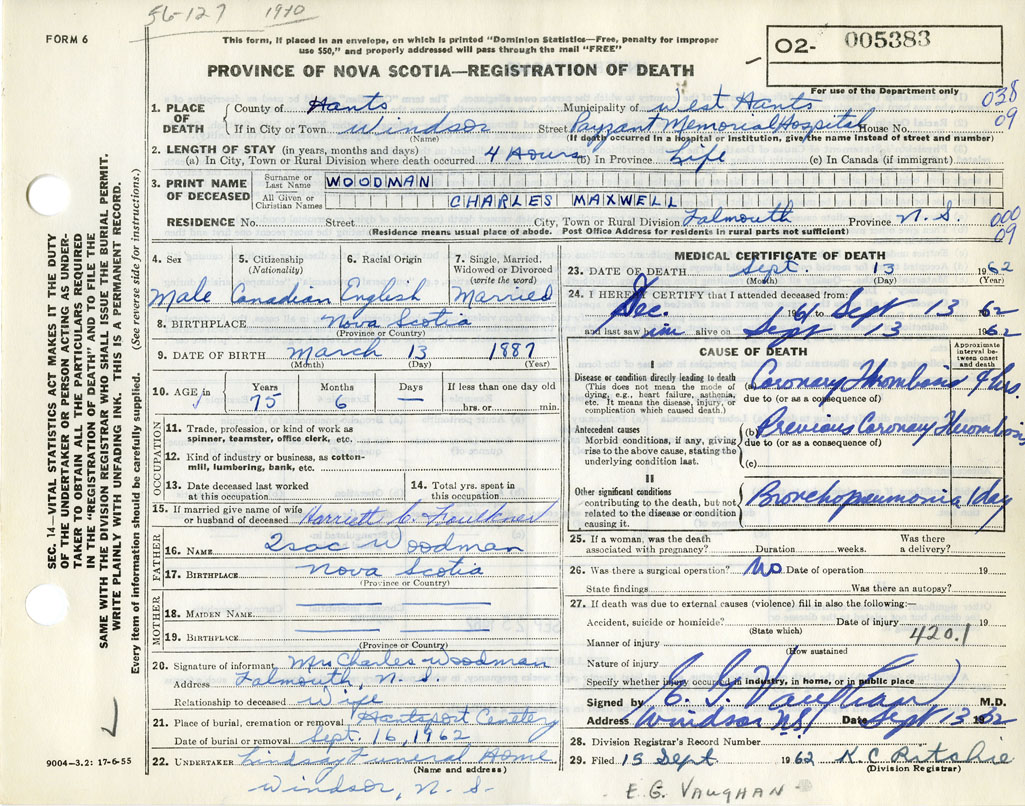 56-127 1970
FORM 6
This form, if placed in an envelope, on which is printed "Dominion Statistics—Free, penalty for improper
use $50," and properly addressed will pass through the mail "FREE"
PROVINCE OF NOVA SCOTIA—REGISTRATION OF DEATH
02- 005383
For use of the Department only
038
09
1. PLACE OF DEATH
County of Hants Municipality of West Hants
If in City or Town Windsor Street Payzant Memorial Hospital House No.
(Name) (If death occurred in a hospital or institution, give the name instead of street and number)
2. LENGTH OF STAY (in years, months and days)
(a) In City, Town or Rural Division where death occurred 4 Hours (b) In Province Life (c) In Canada (if immigrant)
3. PRINT NAME OF DECEASED
Surname or Last Name WOODMAN
All Given or Christian Names CHARLES MAXWELL
RESIDENCE No. Street City, Town or Rural Division Falmouth Province N.S.
000
09
(Residence means usual place of abode. Post Office Address for residents in rural parts not sufficient)
4. Sex 5. Citizenship (Nationality) 6. Racial Origin 7. Single, Married, Widowed or Divorced (write the word)
Male Canadian English Married
8. BIRTHPLACE Nova Scotia
(Province or Country)
9. DATE OF BIRTH March 13 1887
(Month) (Day) (Year)
10. AGE in Years Months Days If less than one day old
75 6 — hrs. or min.
OCCUPATION
11. Trade, profession, or kind of work as
spinner, teamster, office clerk, etc.
12. Kind of industry or business, as cotton-
mill, lumbering, bank, etc.
13. Date deceased last worked
at this occupation
14. Total yrs. spent in
this occupation
15. If married give name of wife
or husband of deceased Harriett C. Faulkner
FATHER
16. NAME Isac Woodman
17. BIRTHPLACE Nova Scotia
(Province or Country)
MOTHER
18. MAIDEN NAME — —
19. BIRTHPLACE — —
(Province or Country)
20. Signature of informant Mrs Charles Woodman
Address Falmouth, N. S.
Relationship to deceased Wife
21. Place of burial, cremation or removal Hantsport Cemetery
Date of burial or removal Sept. 16, 1962
22. UNDERTAKER Lindsay Funeral Home
(Name and address)
Windsor, N. S.
MEDICAL CERTIFICATE OF DEATH
23. DATE OF DEATH Sept. 13 1962
(Month) (Day) (Year)
24. I HEREBY CERTIFY that I attended deceased from:
Dec. 1961 to Sept 13 1962
and last saw him alive on Sept 13 1962
CAUSE OF DEATH
Approximate interval between onset and death
I
Disease or condition directly leading to death
(This does not mean the mode of
dying, e.g., heart failure, asthenia,
etc. It means the disease, injury, or
complication which caused death.)
(a) Coronary Thrombosis 9 hrs.
due to (or as a consequence of)
Antecedent causes
Morbid conditions, if any, giving
rise to the above cause, stating the
underlying condition last.
(b) Previous Coronary Thrombosis
due to (or as a consequence of)
(c)
II
Other significant conditions
contributing to the death, but not
related to the disease or condition
causing it.
Bronchopneumonia 1 day
25. If a woman, was the death
associated with pregnancy? Duration weeks. Was there
a delivery?
26. Was there a surgical operation? No Date of operation 19
State findings Was there an autopsy?
27. If death was due to external causes (violence) fill in also the following:—
Accident, suicide or homicide? Date of injury 19
(State which)
420.1
Manner of injury
(How sustained
Nature of injury
Specify whether injury occurred in industry, in home, or in public place
Signed by E G Vaughan M.D.
Address Windsor NS Date Sept 13 1962
28. Division Registrar's Record Number
29. Filed 15 Sept 1962 K C Ritchie
(Division Registrar)
- E. G. VAUGHAN -
SEC. 14—VITAL STATISTICS ACT MAKES IT THE DUTY
OF THE UNDERTAKER OR PERSON ACTING AS UNDER-
TAKER TO OBTAIN ALL THE PARTICULARS REQUIRED
IN THE "REGISTRATION OF DEATH" AND TO FILE THE
SAME WITH THE DIVISION REGISTRAR WHO SHALL ISSUE THE BURIAL PERMIT.
WRITE PLAINLY WITH UNFADING INK. THIS IS A PERMANENT RECORD.
Every item of information should be carefully supplied. (See reverse side for instructions.)
9004—3.2: 17-6-55